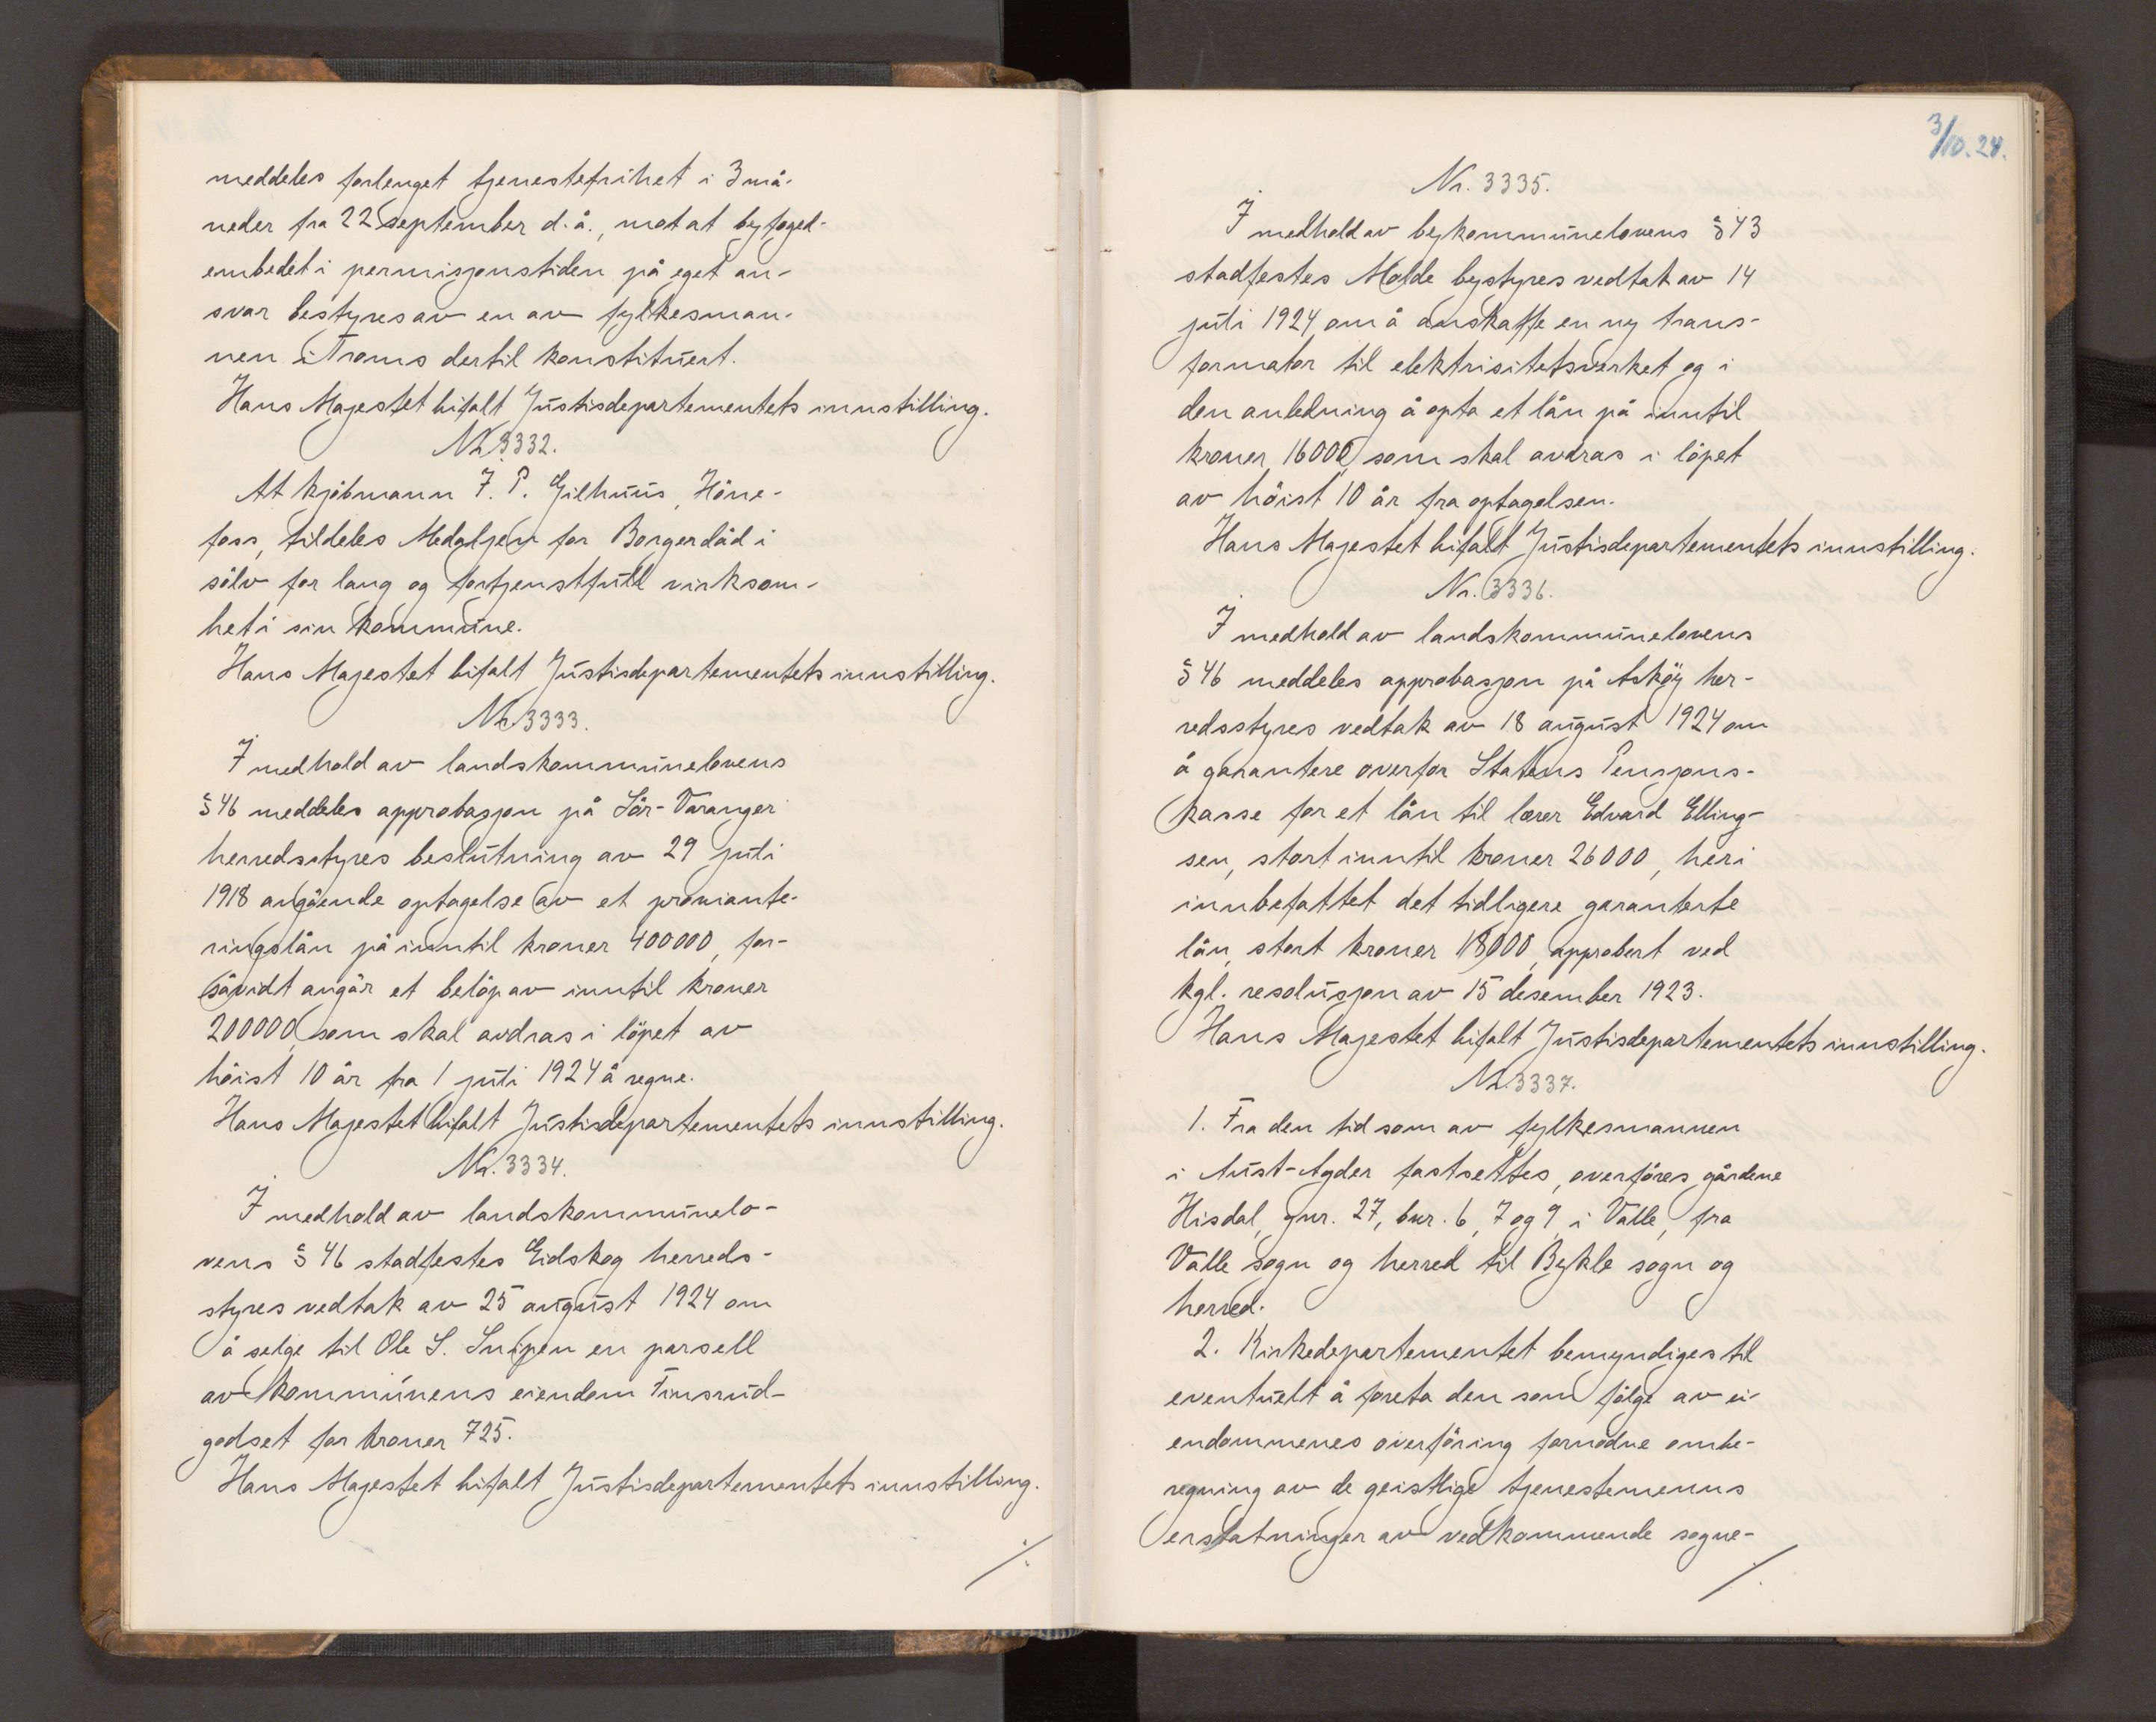 meddeles forlenget tjenestefrihet i 3 må-
neder fra 22 september d. å., mot at byfoged-
embedet i permisjonstiden på eget an-
svar bestyres av en av fylkesman-
nen i Troms dertil konstituert.
Hans Majestet bifalt Justisdepartementets innstilling.
Nr. 3332.
At kjøbmann J. P. Gilhuus, Høne-
foss, tildeles Medaljen for Borgerdåd i
sølv for lang og fortjenstfull virksom-
het i sin kommune.
Hans Majestet bifalt Justisdepartementets innstilling.
Nr. 3333.
I medhold av landskommunelovens
§ 46 meddeles approbasjon på Sør-Varanger
herredsstyres beslutning av 29 juli
1918 angående optagelse av et proviante-
ringslån på inntil kroner 400000, for-
såvidt angår et beløp av inntil kroner
200000, som skal avdras i løpet av
høist 10 år fra 1 juli 1924 å regne.
Hans Majestet bifalt Justisdepartementets innstilling.
Nr. 3334.
I medhold av landskommunelo-
vens § 46 stadfestes Eidskog herreds-
styres vedtak av 25 august 1924 om
å selge til Ole S. Snipen en parsell
av kommunens eiendom Finsrud-
godset for kroner 725.
Hans Majestet bifalt Justisdepartementets innstilling.
./.
3/10.24.
Nr. 3335.
I medhold av bykommunelovens § 43
stadfestes Molde bystyres vedtak av 14
juli 1924 om å anskaffe en ny trans-
formator til elektrisitetsverket og i
den anledning å opta et lån på inntil
kroner 16000, som skal avdras i løpet
av høist 10 år fra optagelsen.
Hans Majestet bifalt Justisdepartementets innstilling.
Nr. 3336.
I medhold av landskommunelovens
§ 46 meddeles approbasjon på Askøy her-
redsstyres vedtak av 18 august 1924 om
å garantere overfor Statens Pensjons-
kasse for et lån til lærer Edvard Elling-
sen, stort inntil kroner 26000, heri
innbefattet det tidligere garanterte
lån, stort kroner 18000, approbert ved
kgl. resolusjon av 15 desember 1923.
Hans Majestet bifalt Justisdepartementets innstilling.
Nr. 3337.
1. Fra den tid som av fylkesmannen
i Aust-Agder fastsettes, overføres gårdene
Hisdal, gnr. 27, bnr. 6, 7 og 9 i Valle, fra
Valle sogn og herred til Bykle sogn og
herred.
2. Kirkedepartementet bemyndiges til
eventuelt å foreta den som følge av ei-
endommenes overføring fornødne ombe-
regning av de geistlige tjenestemenns
erstatninger av vedkommende sogne-
./.